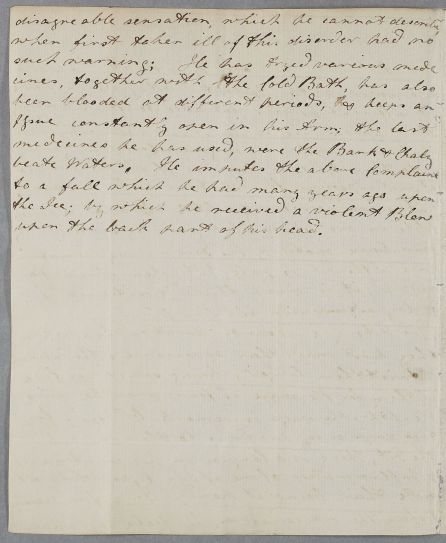 disagreeable sensation, which he cannot describe,
when first taken ill of this disorder had no
such warning; He has tryed various mede
cines, together with the Cold Bath, has also
been blooded at different periods, & keeps an
Issue constantly open in his Arm; the last
medecines he has used, were the Bark & Chaly
beate Waters. He imputes the above Complaint
to a fall which he had many years ago upon
the Ice; by which he received a violent Blow
upon the back part of his head.